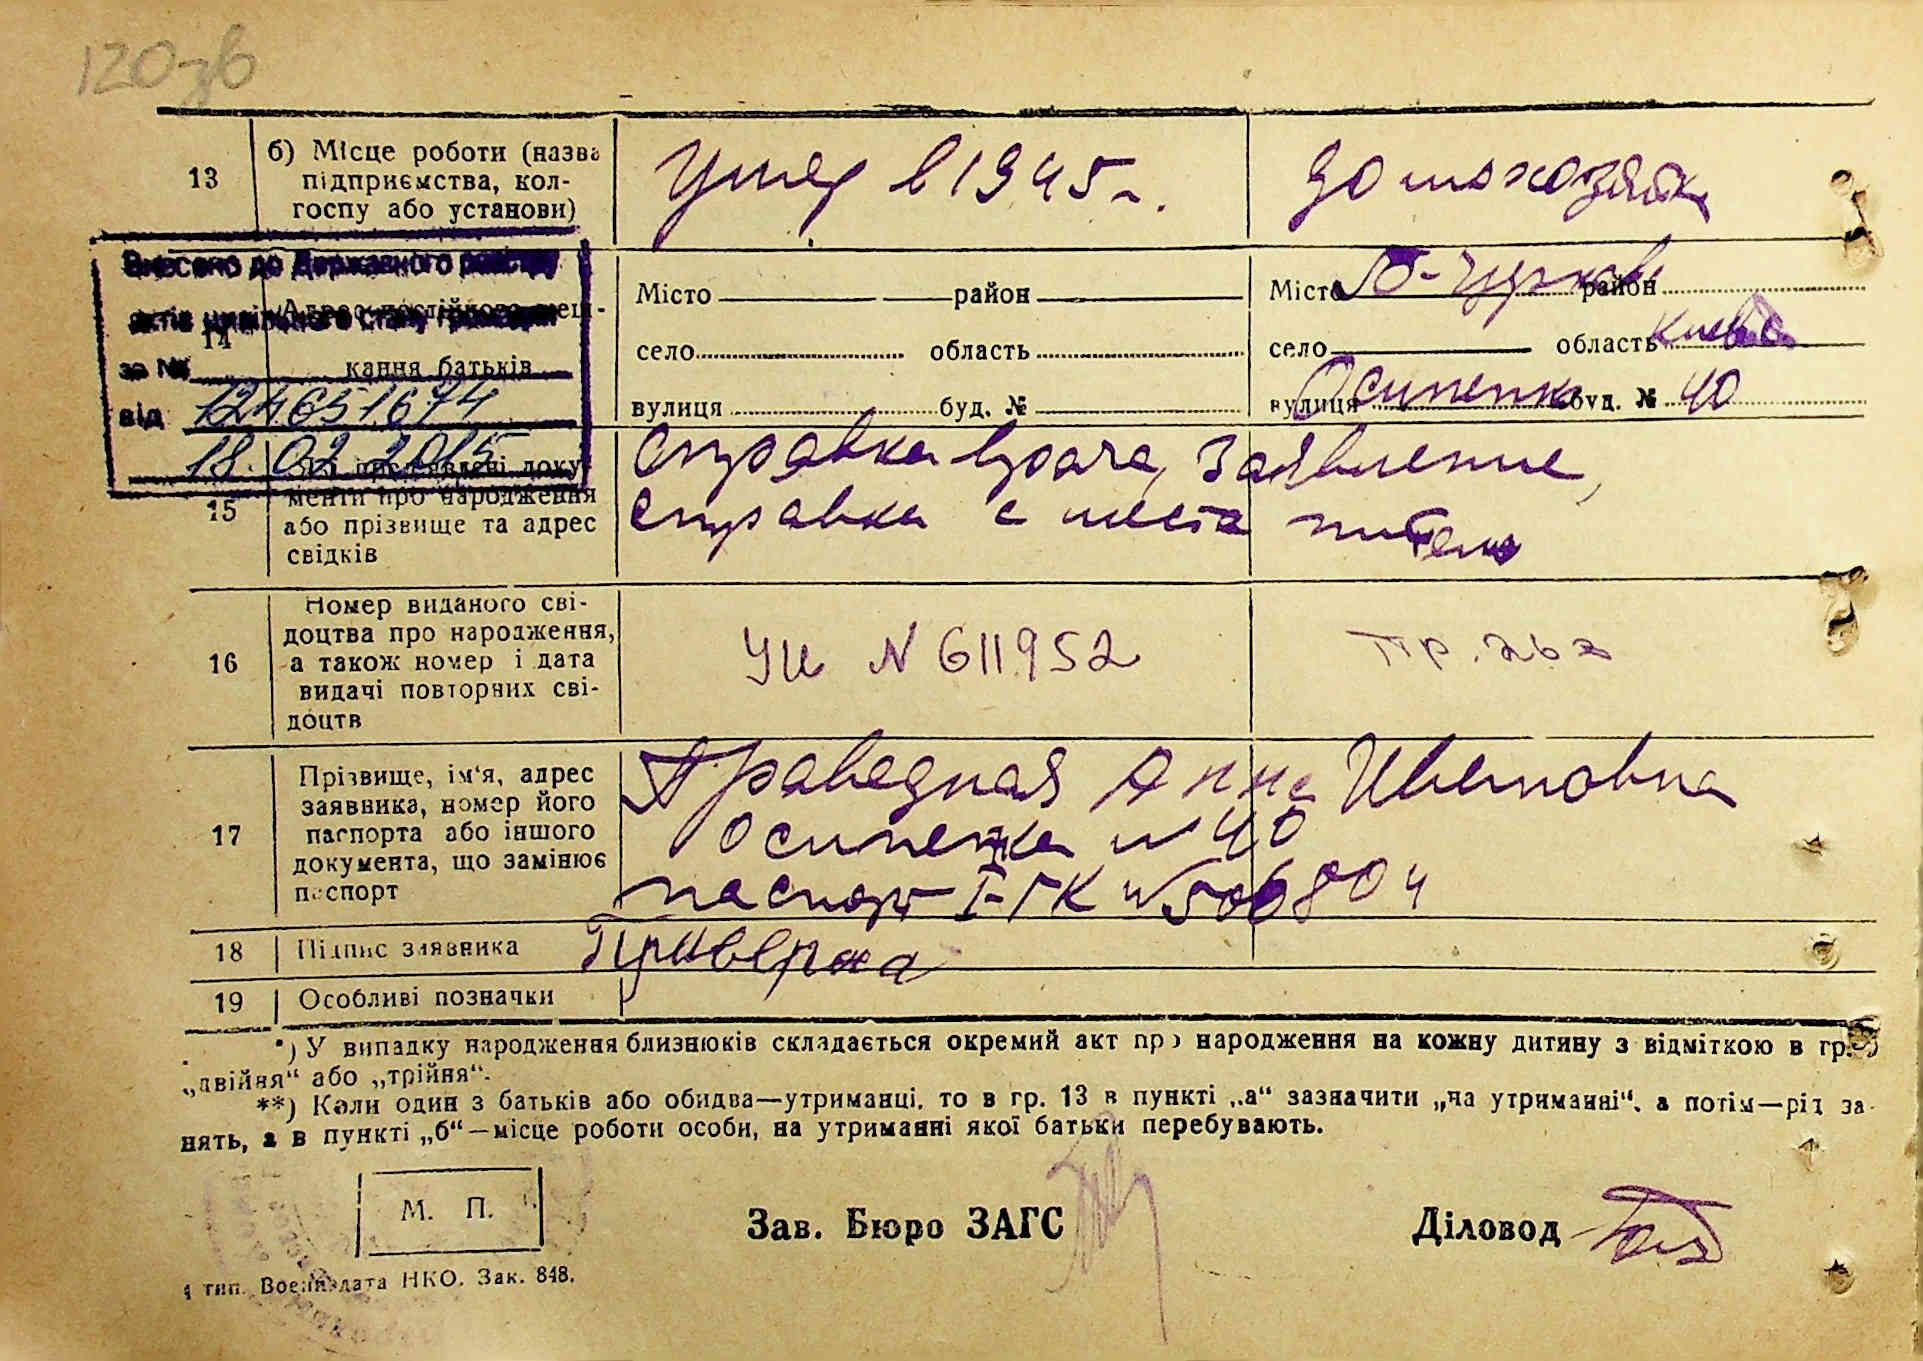 120зв
13
б) Місце роботи (назва
підприємства, кол-
госпу або установи)
Умер в 1945г.
домохозяйка
Внесено до Державного реєстру
актів цивільного стану громадян
за №
від 124651674
18.02.2015
14
Адрес постійного меш-
кання батьків
Місто район
село область
вулиця буд. №
Місто Б-Церковь район
село область Киевск
вулиця Осипенко буд. № 40
15
Які пред'явлені доку-
менти про народження
або прізвище та адрес
свідків
Справка врача, Заявление,
Справка с места
16
Номер виданого сві-
доцтва про народження,
а також номер і дата
видачі повторних сві-
доцтв
N 611952
17
Прізвище, ім'я, адрес
заявника, номер його
паспорта або іншого
документа, що замінює
паспорт
Праведная Анна Ивановна
Осипенка N 40
паспорт I-ГК N 506804
18
Підпис заявника
19
Особливі позначки
*) У випадку народження близнюків складається окремий акт про народження на кожну дитину з відміткою в гр.
„двійня“ або „трійня“.
**) Коли один з батьків або обидва—утриманці, то в гр. 13 в пункті „а“ зазначити „на утриманні“, а потім—рід за-
нять, а в пункті „б“—місце роботи особи, на утриманні якої батьки перебувають.
М. П.
Зав. Бюро ЗАГС
Діловод
4 тип. Воениздата НКО. Зак. 848.